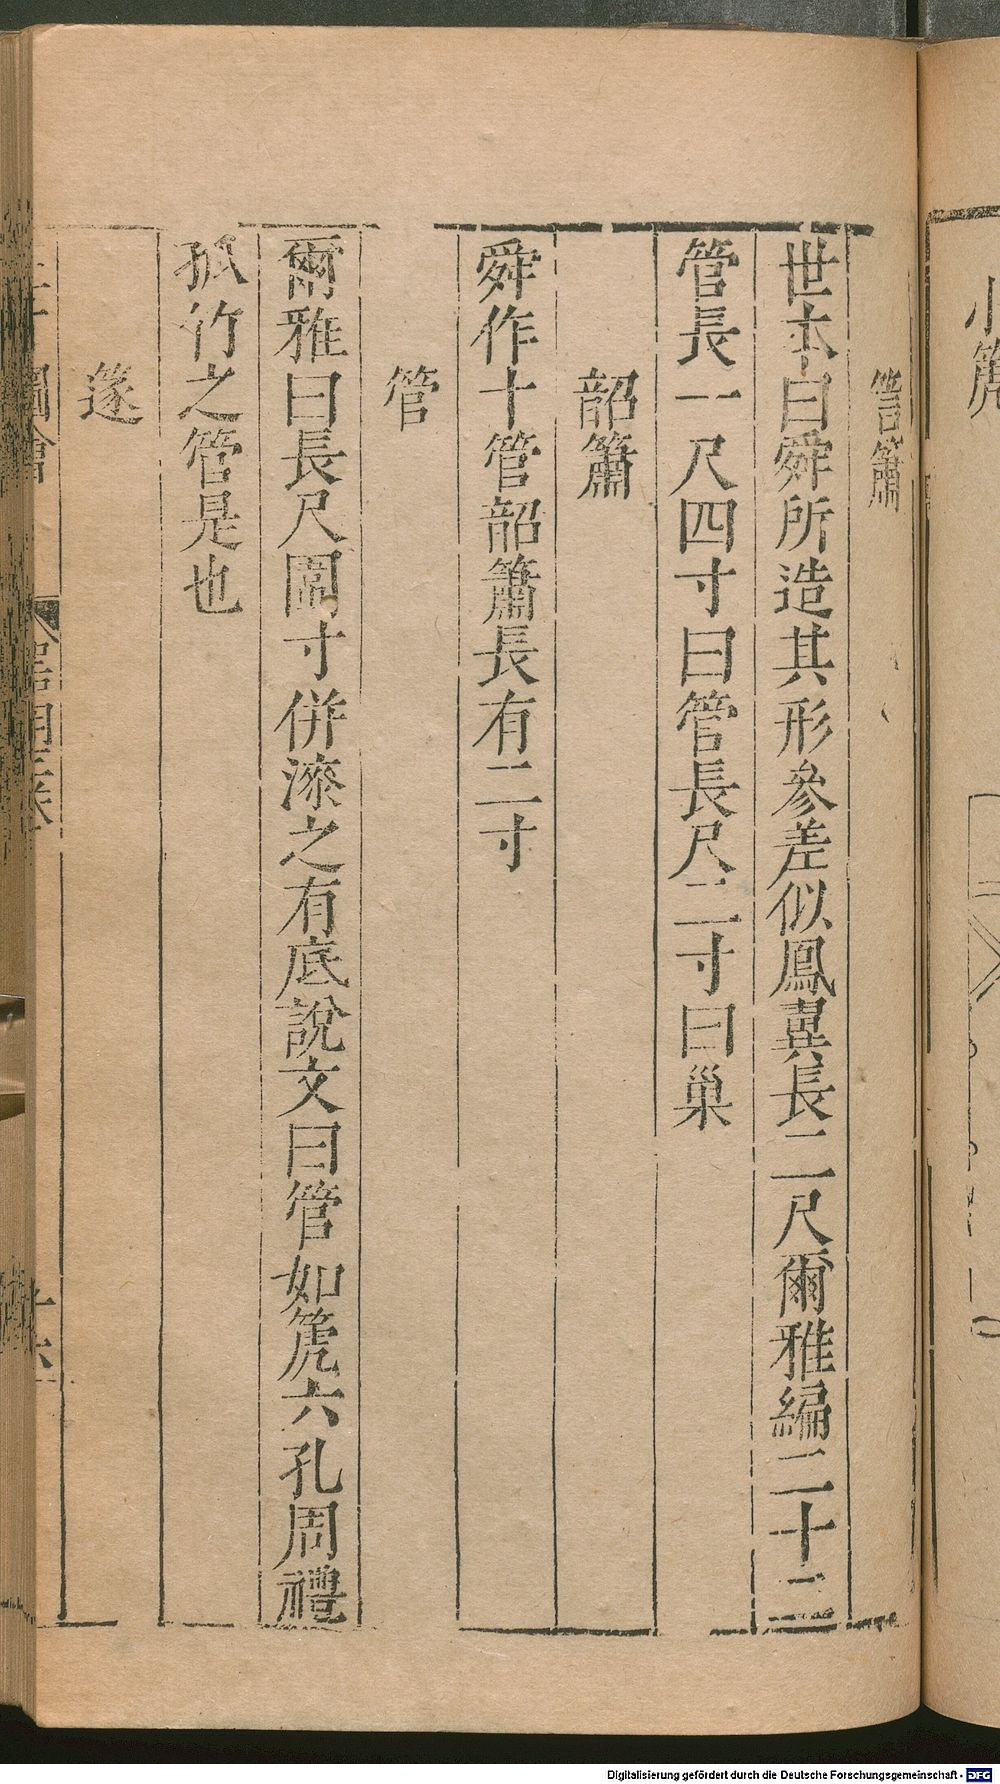 小篪
䇾簫
世本曰舜所造其形參差似鳳翼長二尺爾雅編二十二
管長一尺四寸曰管長尺二寸曰巢
韶簫
舜作十管韶簫長有二寸
管
爾雅曰長尺圍寸併漆之有底說文曰管如篪六孔周禮
孤竹之管是也
篴
Digitalisierung gefördert durch die Deutsche Forschungsgemeinschaft - DFG